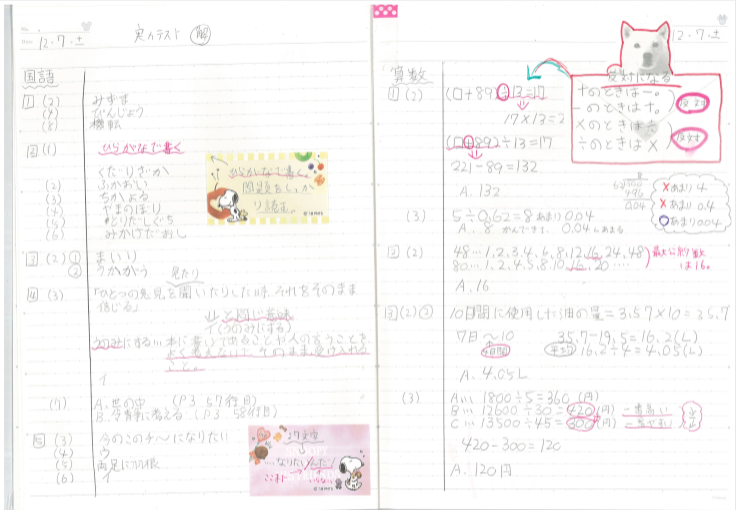 12・7・土
実力テスト 解
国語
1 (2) みずま
(4) びんじょう
(8) 機転
2 (1) ひらがなで書く
くだりざか
(2) ふかおい
(3) ちかよる
(4) やまのぼり
(5)
(6) みかけだおし
ひらがなで書く。
問題をしっかり読む。
3 (2) ① まいり
② うかがう
見たり
4 (3) 「ひとつの意見を聞いたりした時、それをそのまま
信じる」
と同じ意味
イ(うのみにする)
うのみにする…本に書いてあることや人の言うことを、
よく考えないで、そのまま受け入れる
こと。
イ
(7) A.世の中 (P3 57行目)
B.冷静に考える (P3 58行目)
5 (3) 今のこのチ〜になりたい
(4) ウ
(5) 両足に羽根
(6) イ
…なりたい
12・7・土
算数
1 (2) (□+89)÷13=17
17×13=2
(□+89)÷13=17
221-89=132
A.132
反対になる
+のときは-。
-のときは+。
×のときは÷
÷のときは×
反対
反対
(3) 5÷0.62=8 あまり 0.04
A.8 0.04
8
496
0.04
×あまり 4
×あまり 0.4
○あまり 0.04
2 (2) 48…1,2,3,4,6,8,12,16,24,48
80…1,2,4,5,8,10,16,20‥‥
最大公約数
は16。
A.16
3 (2) ② 10日間に使用した油の量=3.57×10=35.7
7日〜10 35.7-19.5=16.2(L)
4日間 平均 16.2÷4=4.05(L)
A.4.05L
(3) A… 1800÷5=360 (円)
B… 12600÷30=420 (円) 一番高い
C… 13500÷45=300 (円) 一番安い
420-300=120
A.120円